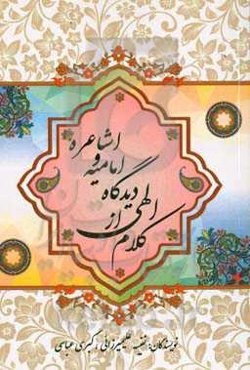 کلام الهی از دیدگاه امامیه و اشاعره
نویسندگان: نفیسه علیمیرزائی، کبری عباسی